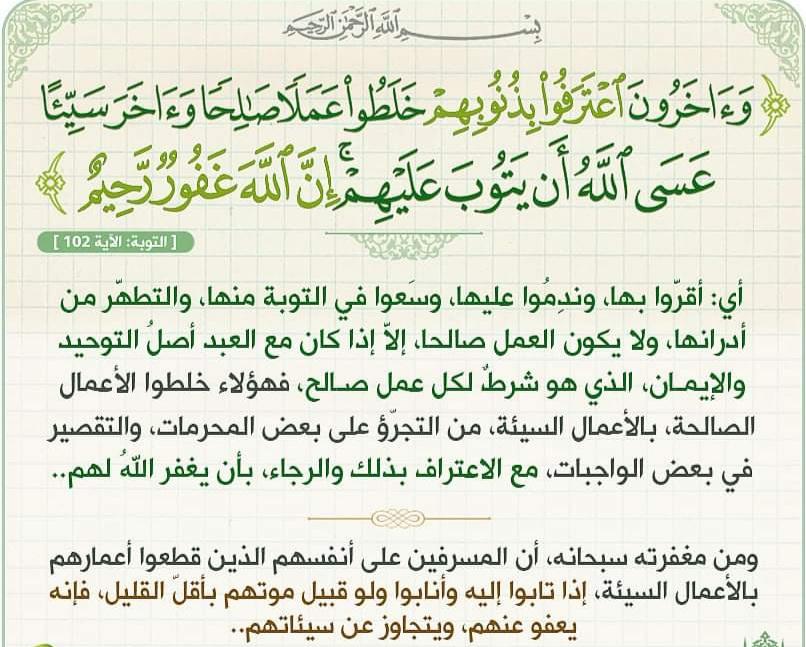 بِسْمِ اللَّهِ الرَّحْمَٰنِ الرَّحِيمِ
﴿ وَءَاخَرُونَ ٱعْتَرَفُوا۟ بِذُنُوبِهِمْ خَلَطُوا۟ عَمَلًا صَٰلِحًا وَءَاخَرَ سَيِّئًا
عَسَى ٱللَّهُ أَن يَتُوبَ عَلَيْهِمْ ۚ إِنَّ ٱللَّهَ غَفُورٌ رَّحِيمٌ ﴾
[ التوبة: الآية 102 ]
أي: أقرّوا بها، وندِمُوا عليها، وسَعوا في التوبة منها، والتطهّر من
أدرانها، ولا يكون العمل صالحا، إلاّ إذا كان مع العبد أصلُ التوحيد
والإيمـان، الذي هو شرطٌ لكل عمل صـالح، فهؤلاء خلطوا الأعمال
الصالحة، بـالأعمال السيئة، من التجرّؤ على بعض المحرمات، والتقصير
في بعض الواجبات، مع الاعتراف بذلك والرجاء، بأن يغفر اللّهُ لهم..
ومن مغفرته سبحانه، أن المسرفين على أنفسهم الذين قطعوا أعمارهم
بالأعمال السيئة، إذا تابوا إليه وأنابوا ولو قبيل موتهم بأقلّ القليل، فإنه
يعفو عنهم، ويتجاوز عن سيئاتهم..